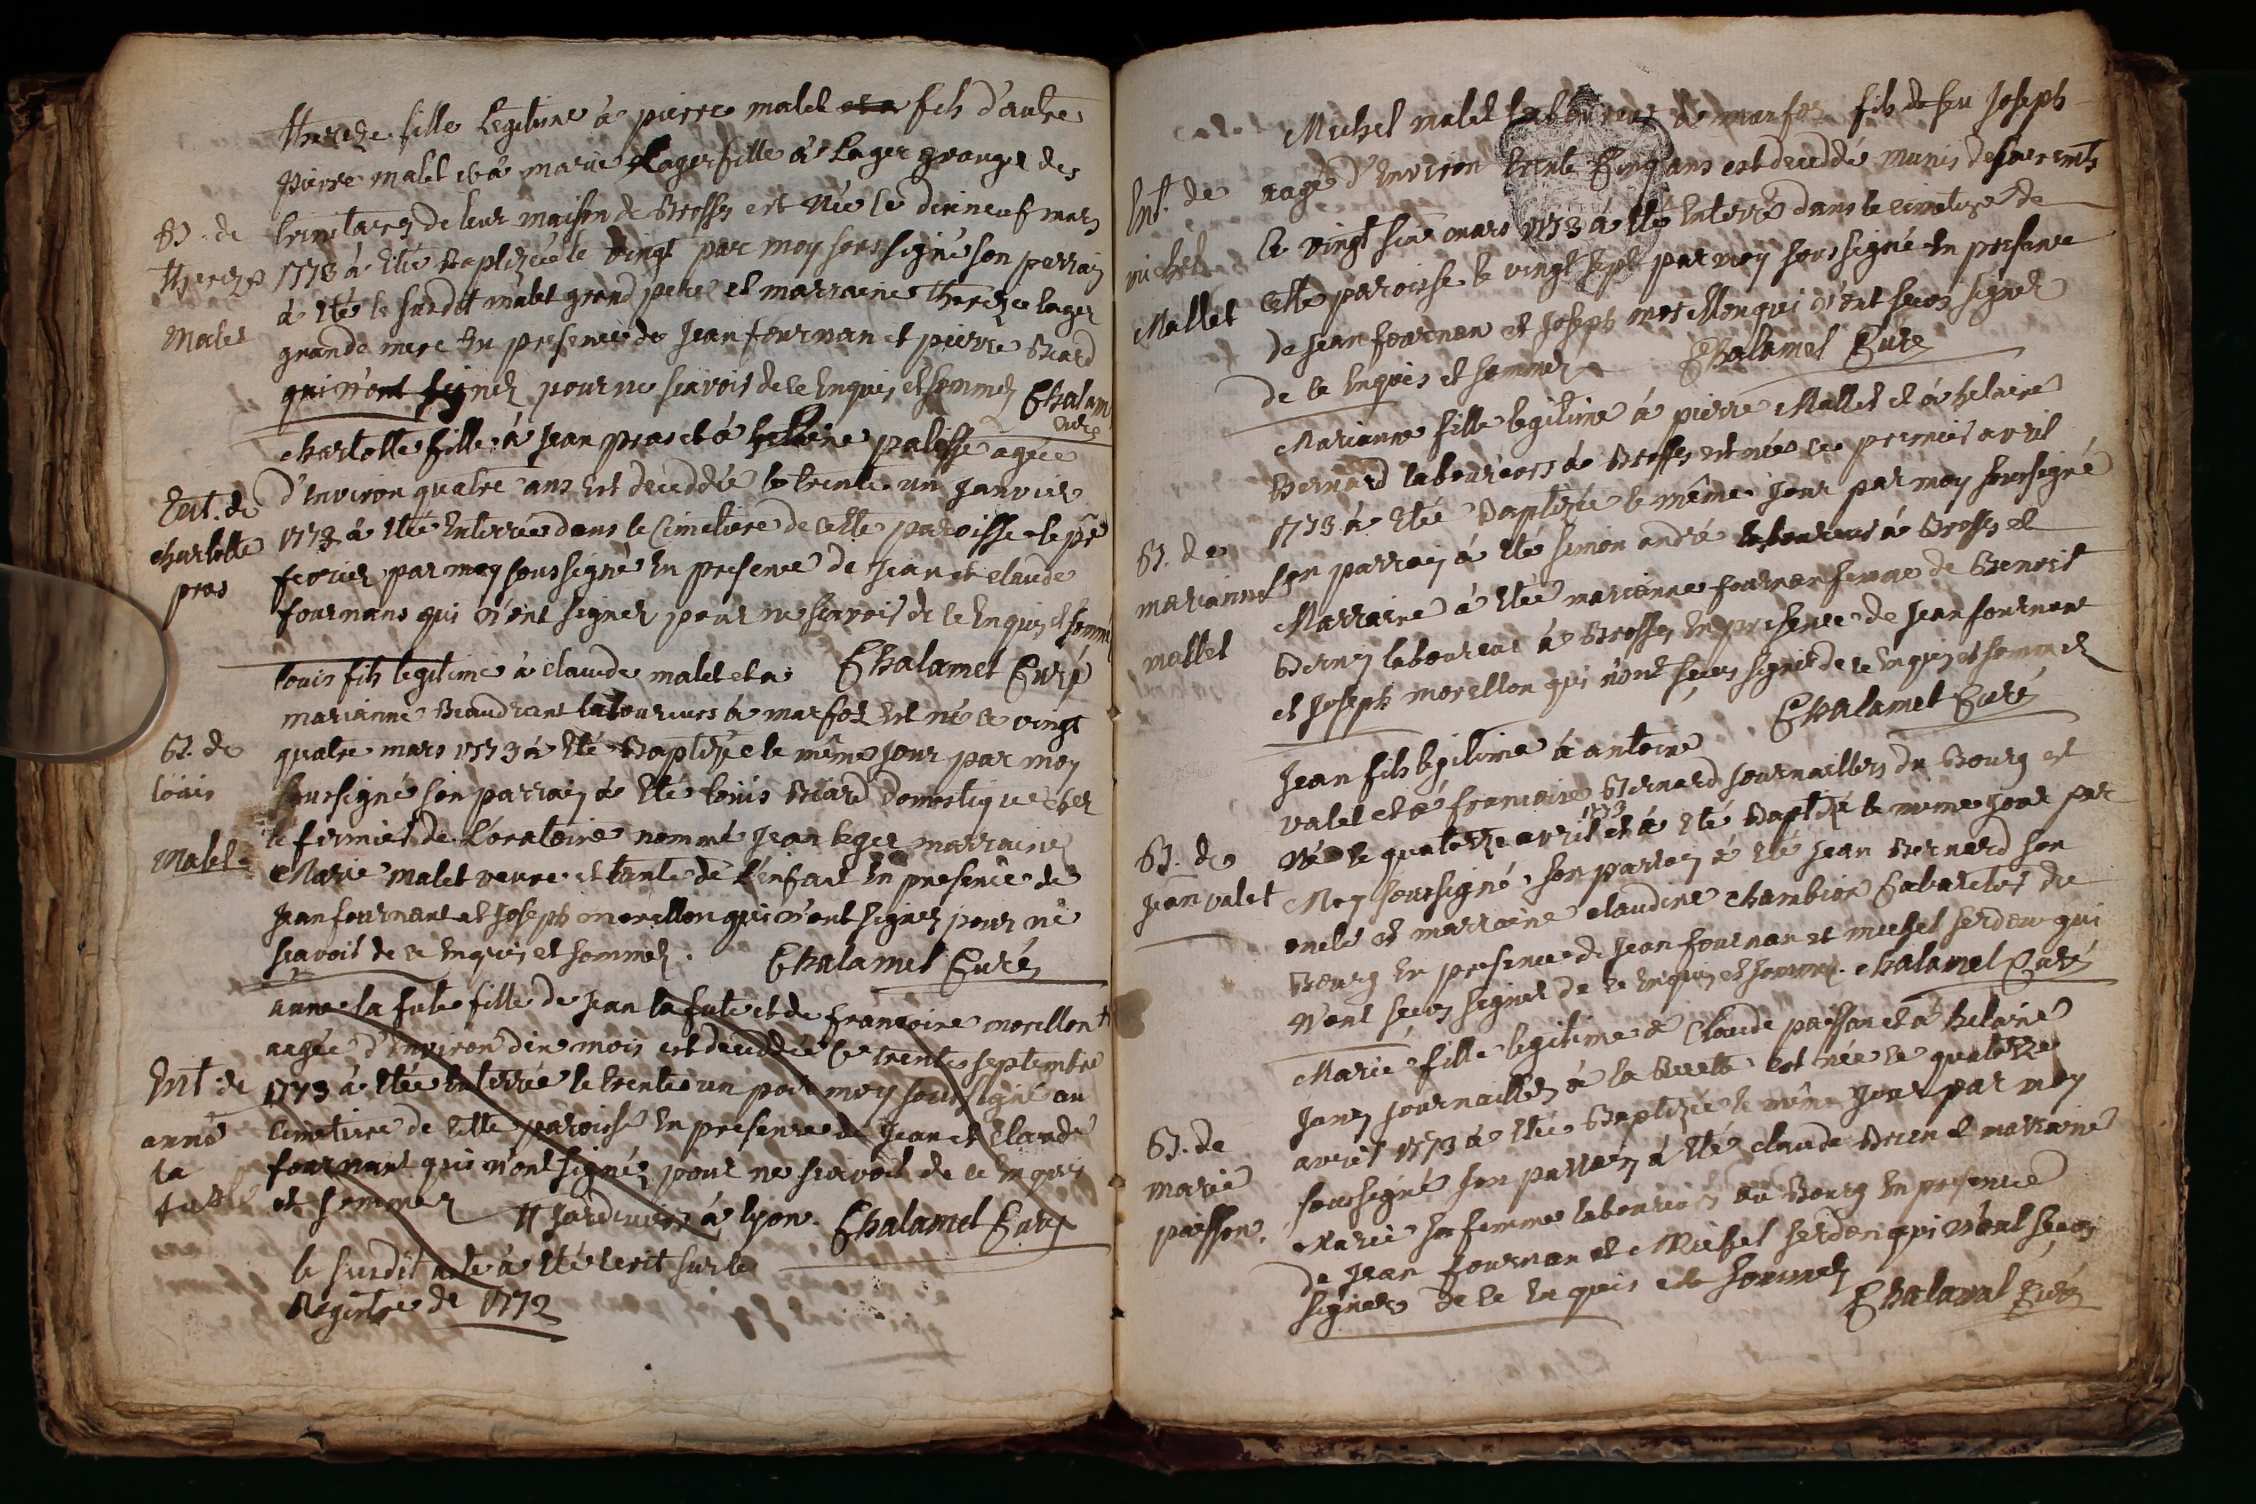 thereze fille legitime à pierre malet fils d'autre
pierre malet et à marie Lager fille à Lager granger des
trinitaires de leur maison de Brosses est née le dixneuf mars
B. de
thereze
malet
1773 à été baptizée le vingt par moy soussigné son perrain
à été le susdit malet grand pere et marraine thereze lager
grande mere en presence de Jean fournan et pierre Biard
qui n'ont signez pour ne scavoir de ce enquis et sommez Chalamel
curé
charlotte fille à Jean pras et à helaine palisse agée
Ent. de
charlotte
pras
d'environ quatre ans est deceddée le trente un janvier
1773 à été enterrée dans le cimetiere de cette paroisse le pr
fevrier par moy soussigné en presence de Jean et claude
fournans qui n'ont signez pour ne scavoir de ce enquis et sommé
Chalamel Curé
louis fils legitime à claude malet et a
marianne Beaudrant laboureurs à marfoz est né le vingt
B. de
louis
malet
quatre mars 1773 à été Baptizé le même jour par moy
soussigné son parrain à été louis Biard domestique chez
le fermier de L'oratoire nommé Jean leger marraine
Marie malet veuve et tante de L'enfant en presence de
Jean fournant et Joseph morellon qui n'ont signez pour ne
scavoir de ce enquis et sommez. Chalamel Curé
anne la fute fille de Jean la fute et de françoise morellon ++
aagée d'environ dix mois est deceddée le trente septembre
Ent. de
anne
la
futte
1773 à été enterrée le trente un par moy soussigné au
cimetiere de cette paroisse en presence de Jean et Claude
fournant qui n'ont signéz pour ne scavoir de ce enquis
et sommez ++ jardiniers à lyon. Chalamel Curé
le susdit acte à été écrit sur le
Registre de 1772
Michel malet laboureur à marfoz fils de feu Joseph
Ent. de
michel
Mallet
aagé d'environ trente cinq ans est deceddé munis des sacremts
le vingt six mars 1773 à été enterré dans le cimetiere de
cette paroisse le vingt sept par moy soussigné en presence
de Jean fournan et Joseph morellon qui n'ont sceu signer
de ce enquis et sommez Chalamel Curé
Marianne fille legitime à pierre Mallet et à helaine
Bernard laboureurs à Brosses est née le premier avril
B. de
marianne
mallet
1773 à été Baptizée le même jour par moy soussigné
son parrain à été simon andré laboureur à Brosses et
Marraine à été marianne fournan femme de Benoit
Berney laboureur à Brosses en presence de Jean fournant
et Joseph morellon qui n'ont sceu signer de ce enquis et sommez
Chalamel Curé
Jean fils legitime à antoine
valet et à françoise Bernard journailliers du Bourg est
B. de
jean valet
né le quatorze avril 1773 et à été Baptizé le même jour par
Moy soussigné son parrain à été Jean Bernard son
oncle et marraine claudine chambion Cabaretier du
Bourg en presence de Jean fournan et michel serdon qui
n'ont sceu signer de ce enquis et sommez. chalamel Curé
Marie fille legitime à Claude paisson et à helaine
Janez journaillez à la est née le quatorze
B. de
marie
paisson.
avril 1773 à été Baptizée le même jour par moy
soussigné son parrain à été claude et marraine
Marie sa femme laboureurs au Bourg en presence
de Jean fournan et Michel serdon qui n'ont sceu
signer de ce enquis et sommez Chalamel Curé